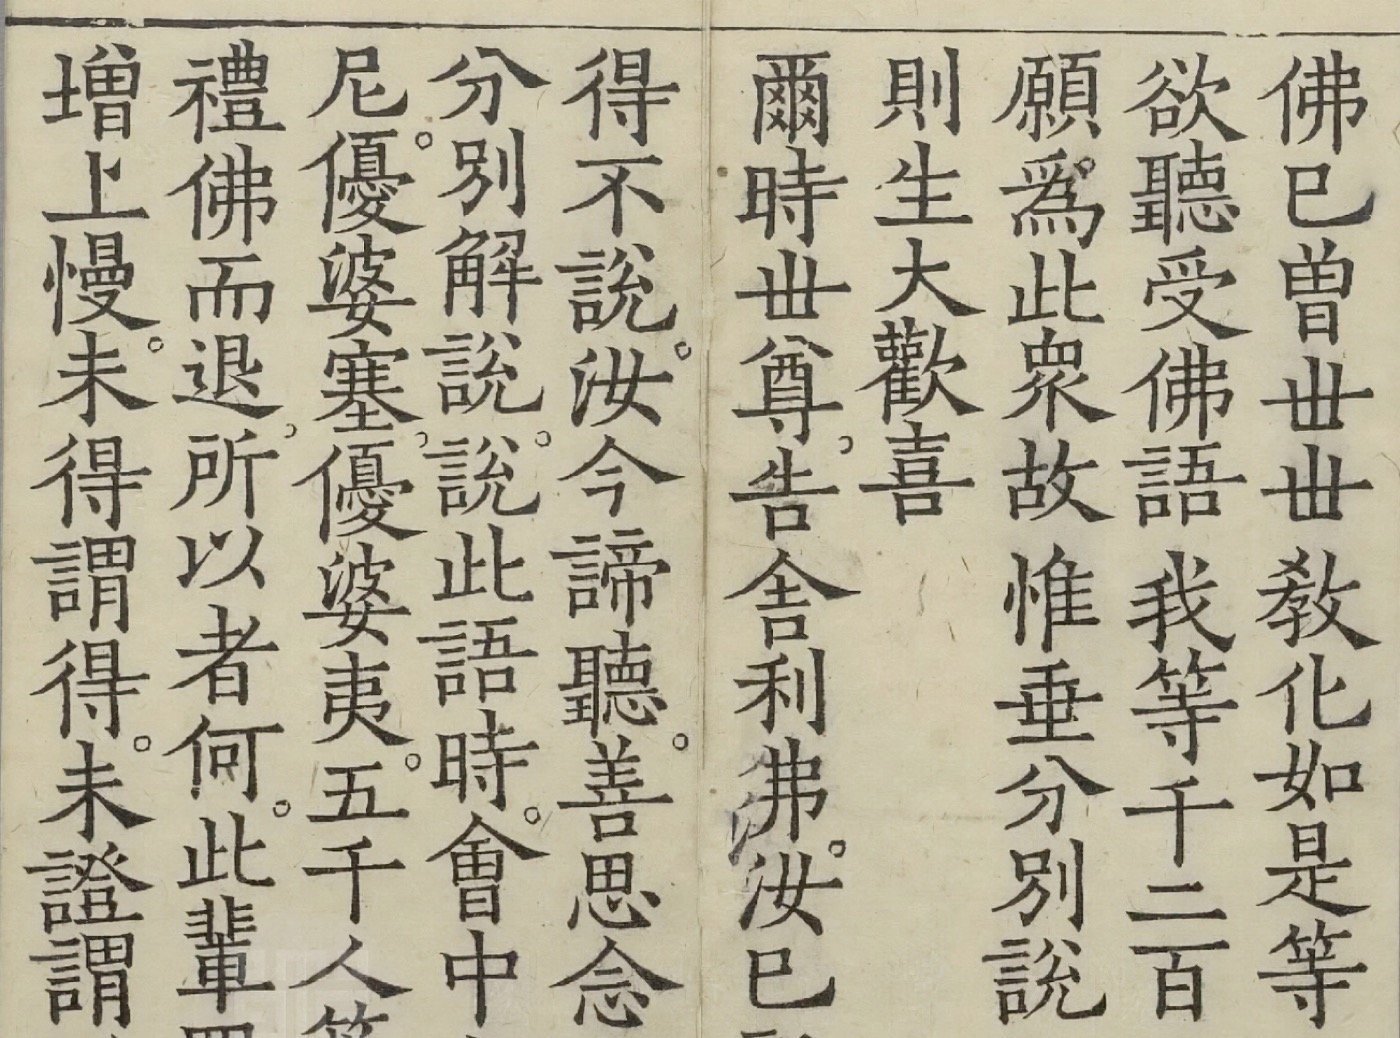 佛已曾丗丗教化如是等
欲聽受佛語我等千二百
願爲此衆故惟垂分別説
則生大歡喜
爾時丗尊告舍利弗。汝已
得不説。汝今諦聽。善思念
分別解説。説此語時。會中
尼。優婆塞。優婆夷。五千人等
禮佛而退。所以者何。此輩罪
増上慢。未得謂得。未證謂